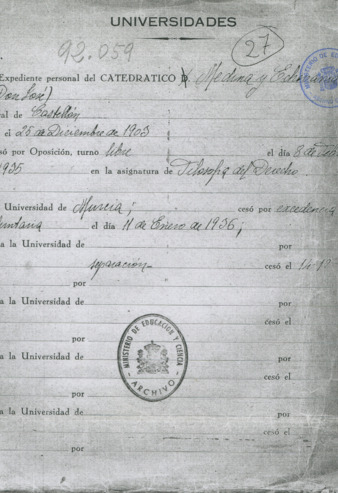 UNIVERSIDADES
92.059
27
Expediente personal del CATEDRATICO D. Medina y Echavarría
(Don José)
al de Castellón
el 25 de Diciembre de 1903
só por Oposición, turno libre el día 8 de
1935 en la asignatura de Filosofía del Derecho.
Universidad de Murcia; cesó por excedencia
el día 11 de Enero de 1936;
a la Universidad de por
separación cesó el
por
a la Universidad de por
cesó el
por
a la Universidad de por
cesó el
por
a la Universidad de por
cesó el
por
MINISTERIO DE EDUCACION Y CIENCIA
ARCHIVO